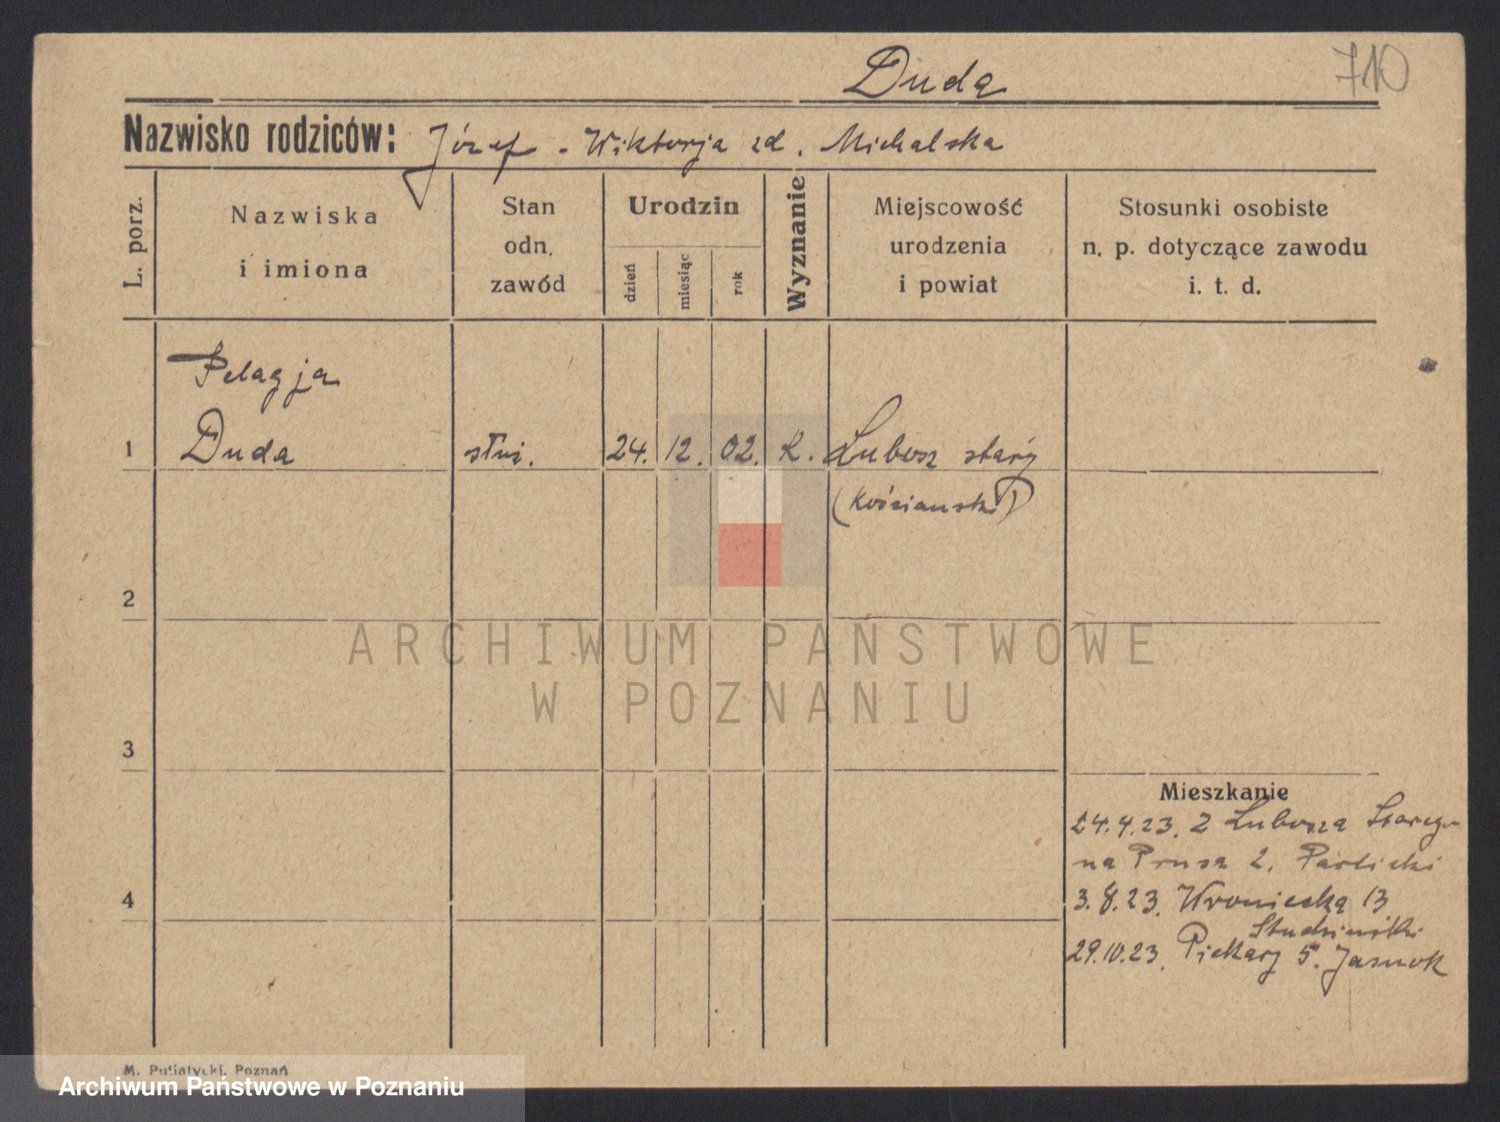 Duda
710
Nazwisko rodziców: Józef - Wiktorja zd. Michalska
L. porz.
Nazwiska
i imiona
Stan
odn.
zawód
Urodzin
dzień
miesiąc
rok
Wyznanie
Miejscowość
urodzenia
i powiat
Stosunki osobiste
n. p. dotyczące zawodu
i. t. d.
Pelagja
1 Duda służ. 24. 12. 02. k. Lubosz stary
(Kościański)
2
3
4
Mieszkanie
24.4.23. Z Lubosza Starego
na Prusa 2.
3.8.23. Wroniecka 13
29.10.23. Piekary 5. Jasnok
M. Putiatycki, Poznań
ARCHIWUM PAŃSTWOWE
W POZNANIU
Archiwum Państwowe w Poznaniu